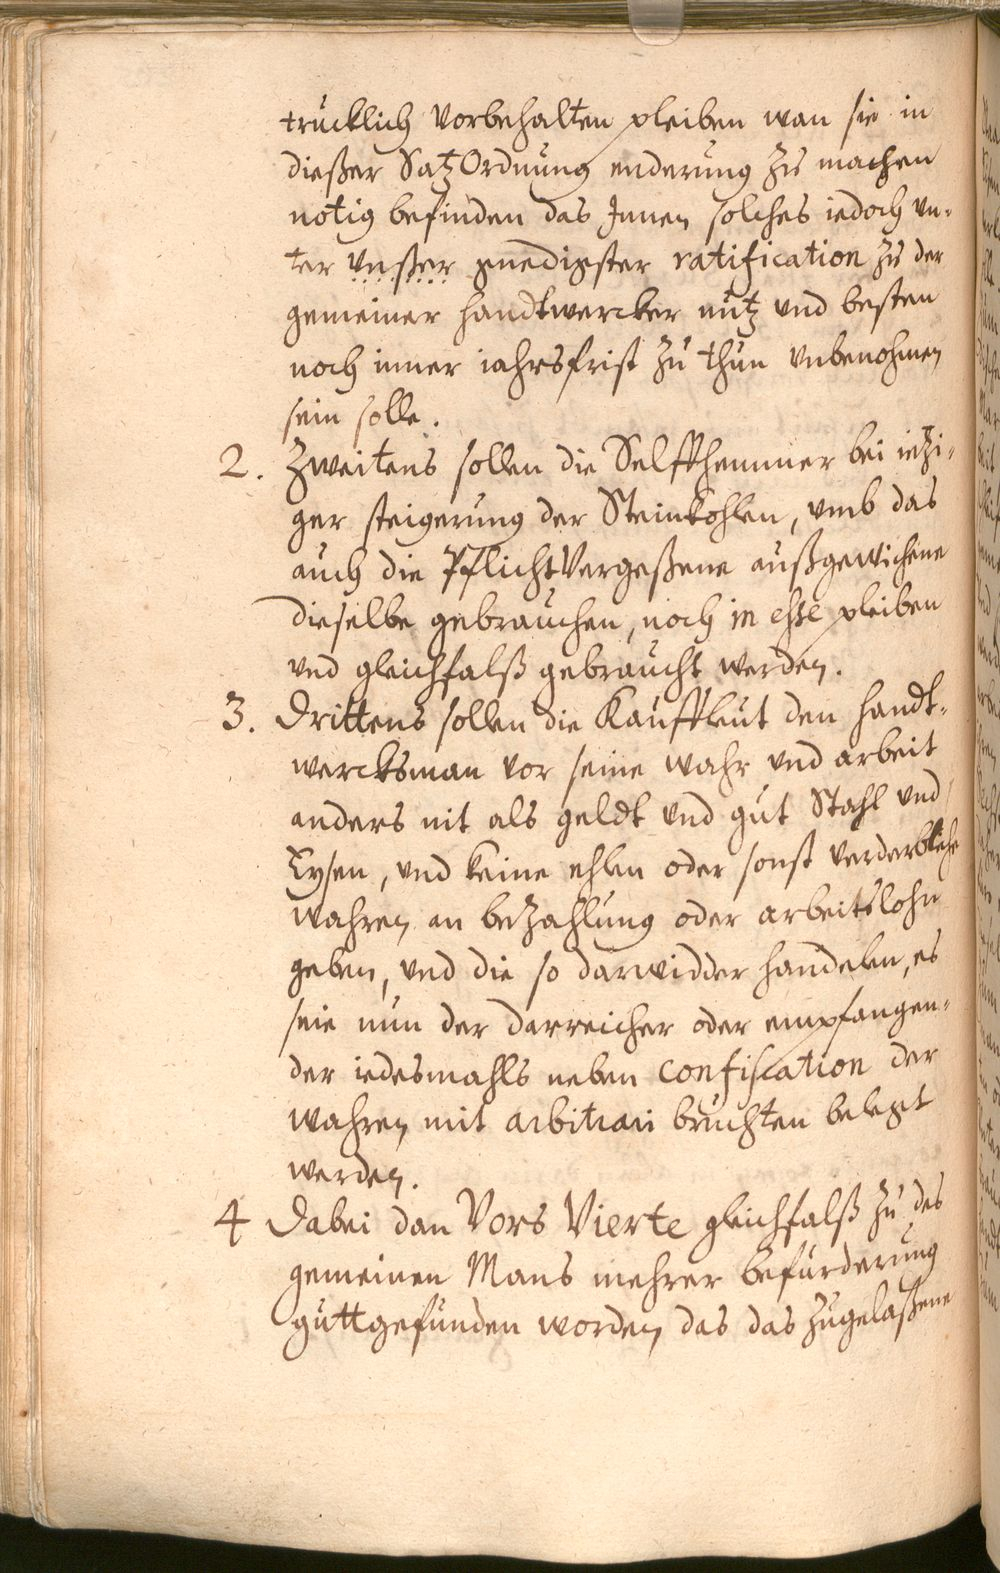 trucklich vorbehalten pleiben wan sie in
dießer Satz Ordnung enderung zu machen
nötig befinden das Jnnen solches iedoch vn-
ter vnßer gnedigster ratification zu der
gemeiner handtwercker nutz vnd besten
noch inner iahrsfrist zu thun vnbenohmen
sein solle.
2. Zweitens sollen die Selffhemmer bei ietzi-
ger steigerung der Steinkohlen, vmb das
auch die PflichtVergeßene außgewichene
dieselbe gebrauchen, noch in esse pleiben
vnd gleichfalß gebraucht werden.
3. Drittens sollen die Kauffleut den handt-
wercksman vor seine wahr vnd arbeit
anders nit als geldt vnd gut Stahl vnd
Eysen, vnd keine ehlen oder sonst verderbliche
wahren an bezahlung oder arbeitslohn
geben, vnd die so darwidder handelen, es
seie nun der darreicher oder empfangen-
der iedesmahls neben confiscation der
wahren mit arbitrari bruchten belegt
werden.
4 Dabei dan Vors Vierte gleichfalß zu des
gemeinen Mans mehrer befurderung
guttgefunden worden das das zugelaßene